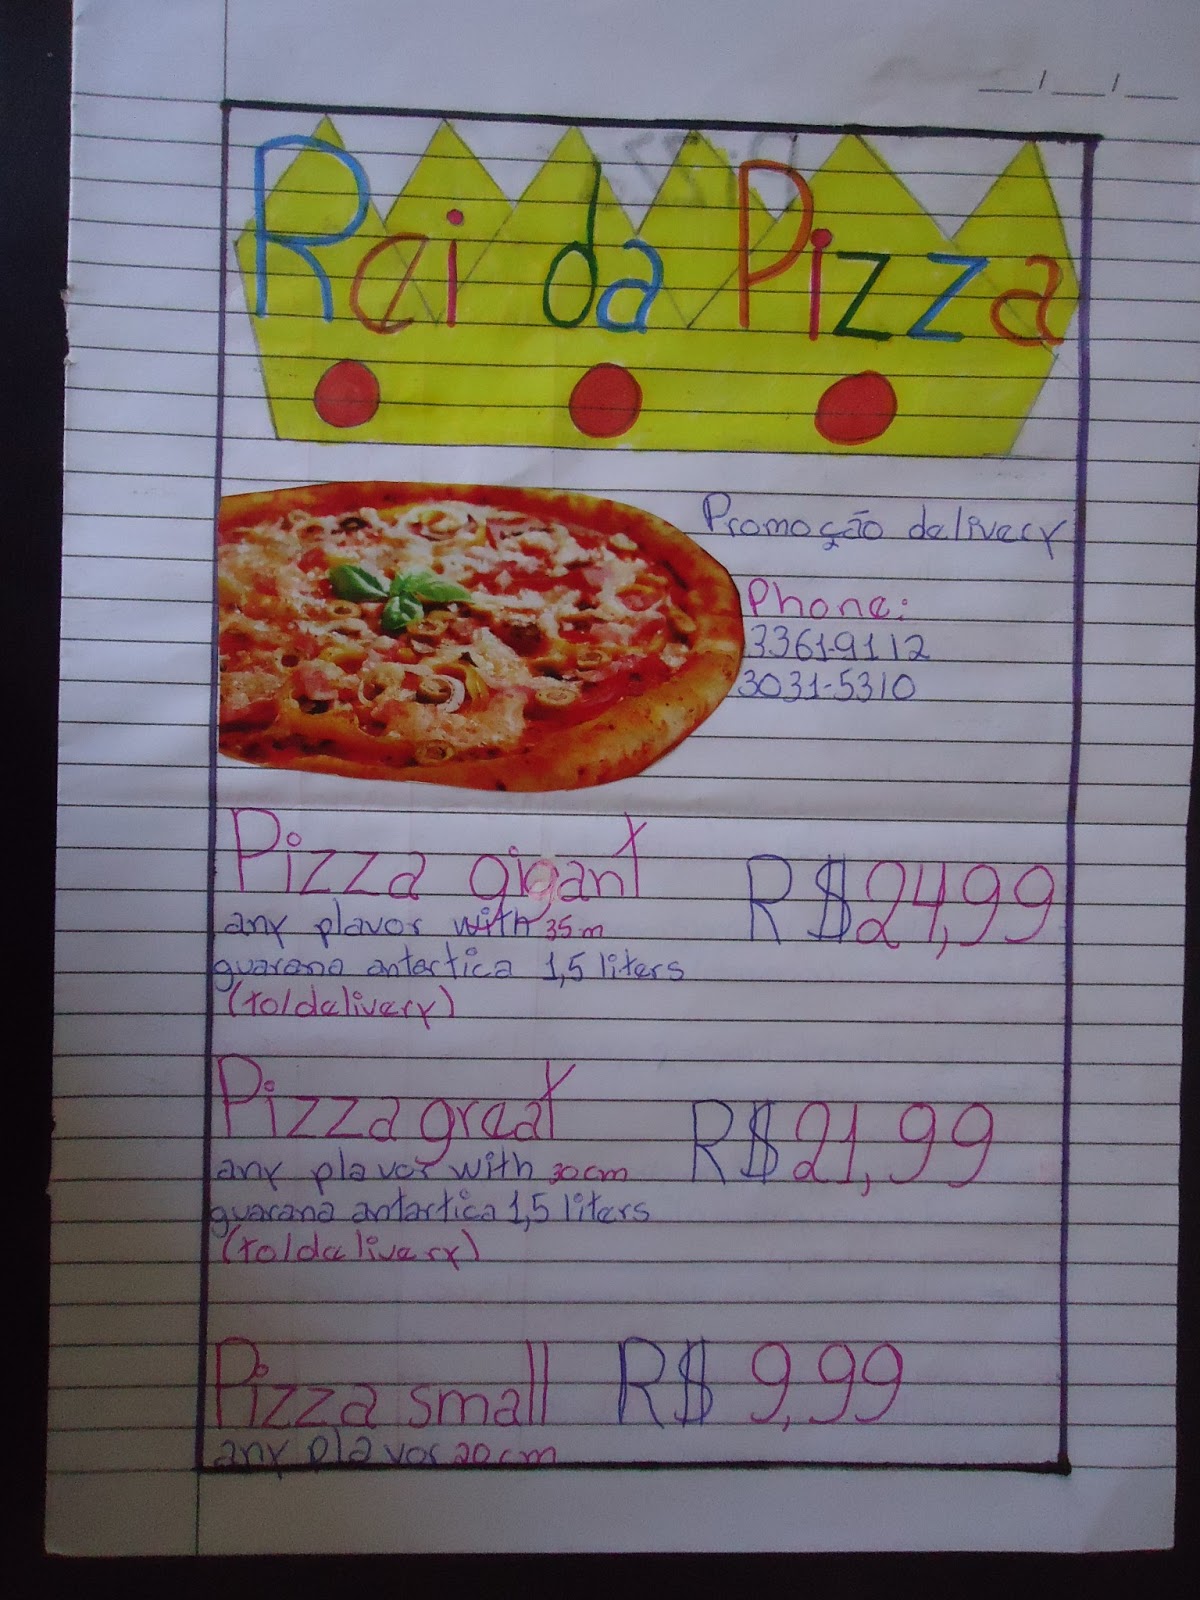 Rei da Pizza
Promoção delivery
Phone:
33619112
3031-5310
Pizza gigant R$24,99
any plavor with 35m
guarana antartica 1,5 liters
(to/delivery)
Pizza great R$21,99
any plavor with 30cm
guarana antartica 1,5 liters
(to/delivery)
Pizza small R$ 9,99
any plavor 20cm